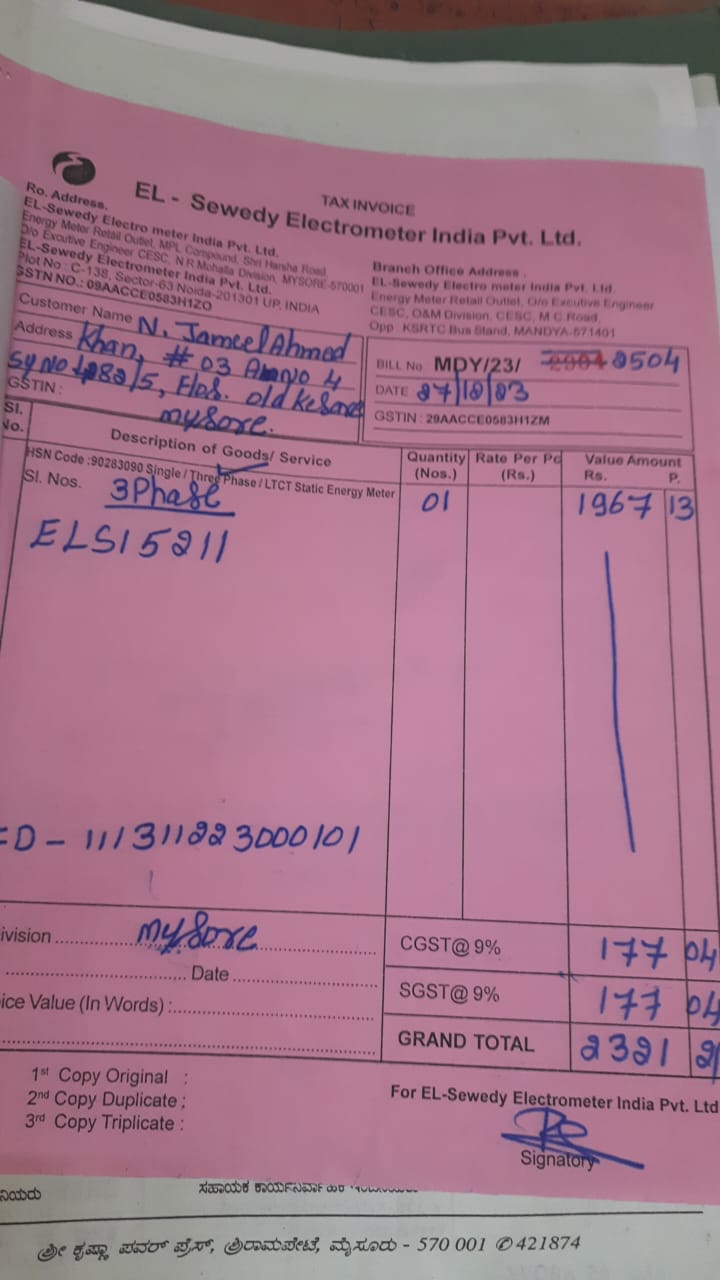 TAX INVOICE
EL - Sewedy Electrometer India Pvt. Ltd.
Ro. Address.
EL-Sewedy Electro meter India Pvt. Ltd.
Energy Meter Retail Outlet, MPL Compound, Shri Harsha Road
O/o Excutive Engineer CESC, N.R Mohalla Division, MYSORE-570001
EL-Sewedy Electrometer India Pvt. Ltd.
Plot No : C-138, Sector-63 Noida-201301 UP, INDIA
GSTN NO.: 09AACCE0583H1ZO
Branch Office Address .
EL-Sewedy Electro meter India Pvt. Ltd.
Energy Meter Retail Outlet, O/o Excutive Engineer
CESC, O&M Division, CESC, M.C.Road,
Opp KSRTC Bus Stand, MANDYA-571401
Customer Name N. Jameel Ahmed
Address Khan, # 03 4
Sy No 5, old
GSTIN : mysore.
BILL No MDY/23/ 2504
DATE 27/12/23
GSTIN : 29AACCE0583H1ZM
Sl. No. Description of Goods/ Service Quantity (Nos.) Rate Per Pc (Rs.) Value Amount Rs. P.
HSN Code :90283090 Single / Three Phase / LTCT Static Energy Meter
Sl. Nos. 3 Phase 01 1967 13
ELS15211
D - 111311223000101
ivision mysore CGST@ 9% 177 04
Date SGST@ 9% 177 04
ice Value (In Words) :
GRAND TOTAL 2321 21
1st Copy Original :
2nd Copy Duplicate :
3rd Copy Triplicate :
For EL-Sewedy Electrometer India Pvt. Ltd
Signatory
ನಿಯರು
ಶ್ರೀ ಕೃಷ್ಣಾ ಪವರ್ ಪ್ರೆಸ್, ಶ್ರೀರಾಮಪೇಟೆ, ಮೈಸೂರು - 570 001 ✆ 421874